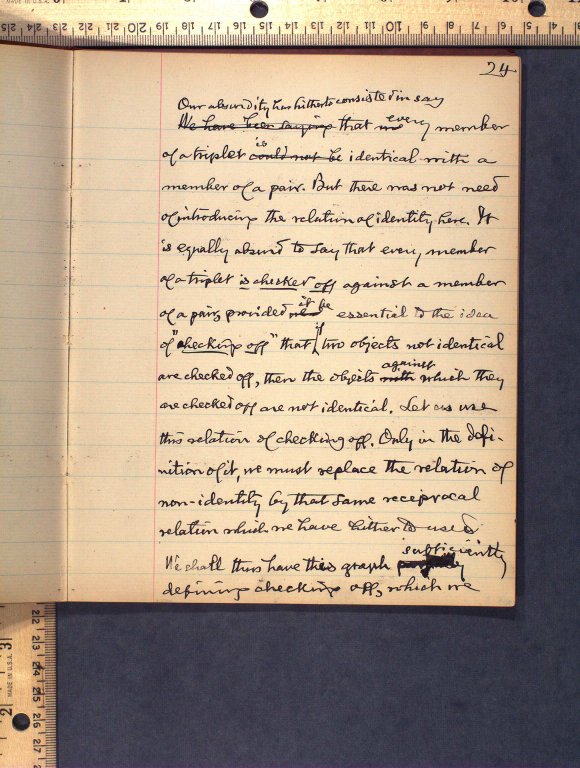 24
Our absurdity has hitherto consisted in say
We have been saying that every member
is
of a triplet could not be identical with a
member of a pair. But there was not need
of introducing the relation of identity here. It
is equally absurd to say that every member
of a triplet is checked off against a member
it be
of a pair, provided essential to the idea
if
of "checking off" that two objects not identical
against
are checked off, then the objects with which they
are checked off are not identical. Let us use
this relation of checking off. Only in the defi-
nition of it, we must replace the relation of
non-identity by that same reciprocal
relation which we have hitherto used
sufficiently
We shall thus have this graph
defining checking off, which we